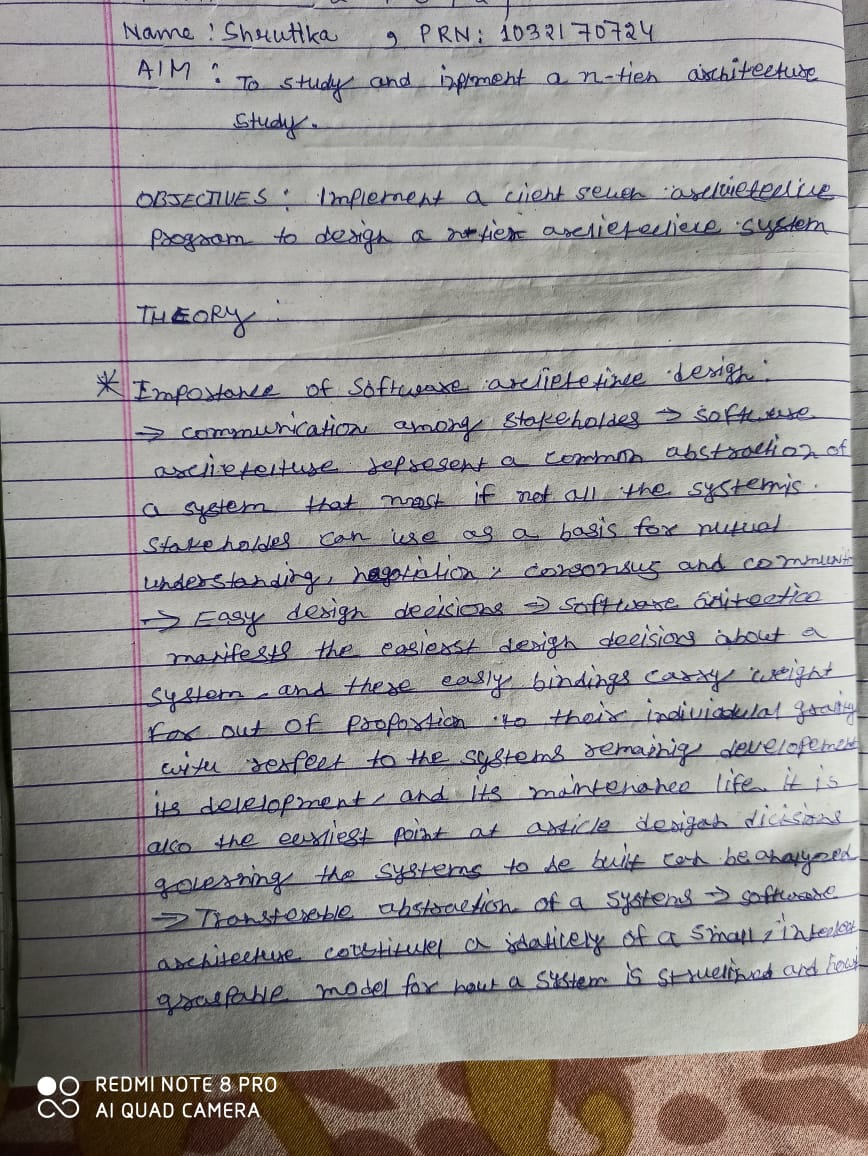 Name : Shruttka , PRN: 1032170724
AIM : To study and implment a n-tier architecture
study.
OBJECTIVES : Implement a client server architecture
program to design a n-tier architecture system
THEORY :
* Impostance of Software architecture design :
→ communication among stakeholdes → software
architecture represent a common abstraction of
a system that most if not all the systemis.
stakeholdes can use as a basis for mutual
understanding, nagotiation, consonsus and communi
→ Easy design decisions → Software
manifests the easiesst design decisions about a
system, and these easly bindings carry weight
for out of proportion to their indiviadulal
with respect to the systems remainig developement
its development, and its maintenance life. it is
also the earliest point at design dicisions
governing the systems to be built can be analyzed
→ Transferable abstraction of a systems → software
architecture a of a small,
graspable model for how a system is and how
REDMI NOTE 8 PRO
AI QUAD CAMERA